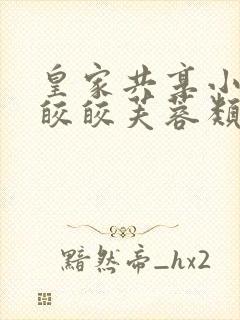 皇家共享小
皎皎芙蓉类
黯然帝_hx2